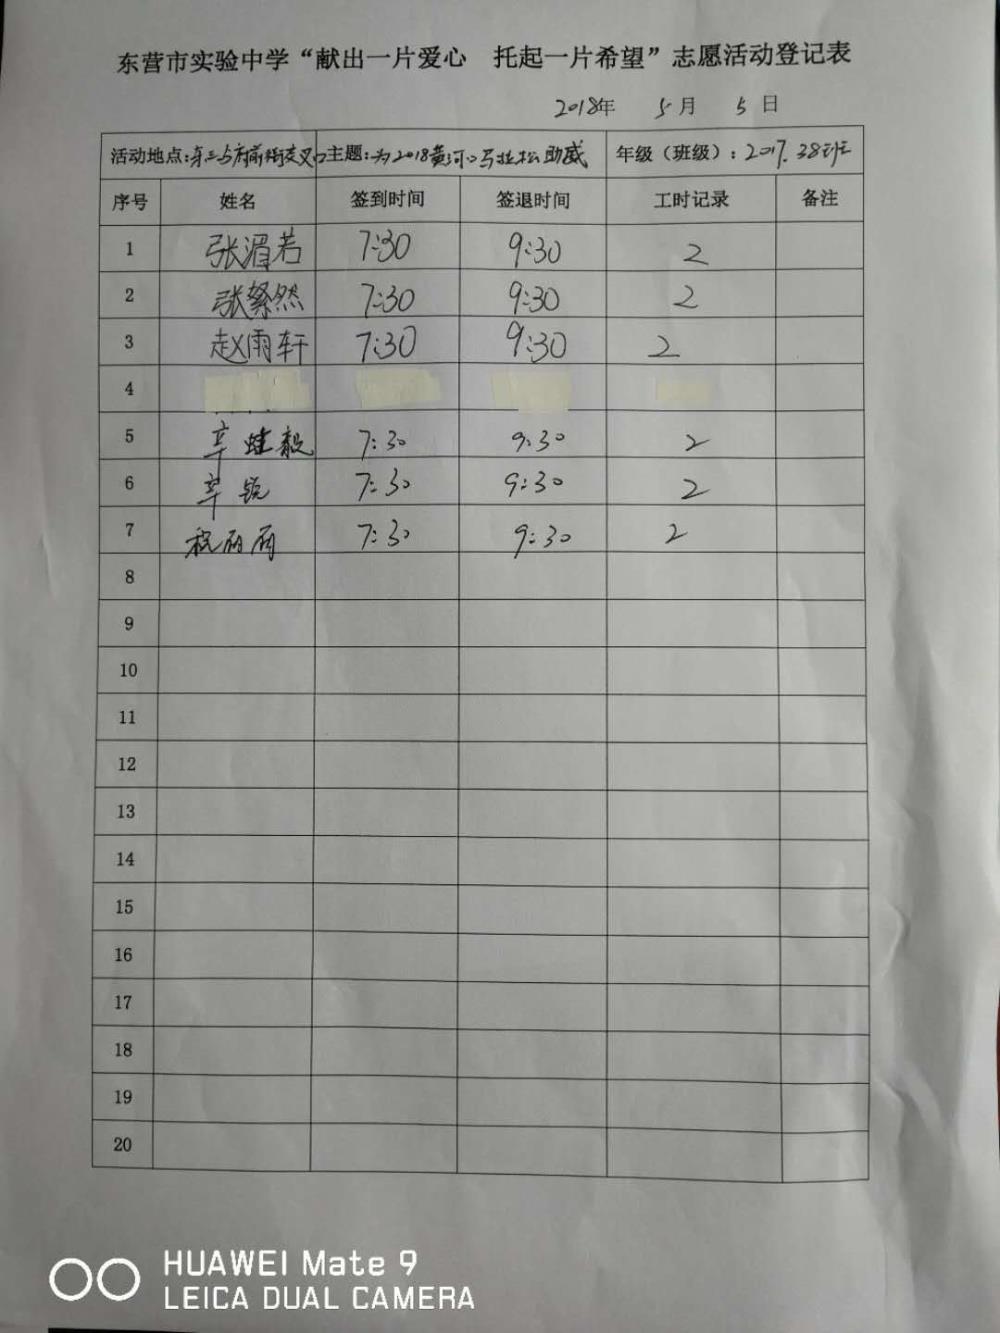 东营市实验中学“献出一片爱心 托起一片希望”志愿活动登记表
2018年 5月 5日
活动地点：东三与府前街交叉口 主题：为2018黄河口马拉松助威 年级（班级）：2017.38班
序号 姓名 签到时间 签退时间 工时记录 备注
1 张湄若 7:30 9:30 2
2 张然 7:30 9:30 2
3 赵雨轩 7:30 9:30 2
4
5 辛毅 7:30 9:30 2
6 辛锐 7:30 9:30 2
7 祝丽丽 7:30 9:30 2
8
9
10
11
12
13
14
15
16
17
18
19
20
HUAWEI Mate 9
LEICA DUAL CAMERA